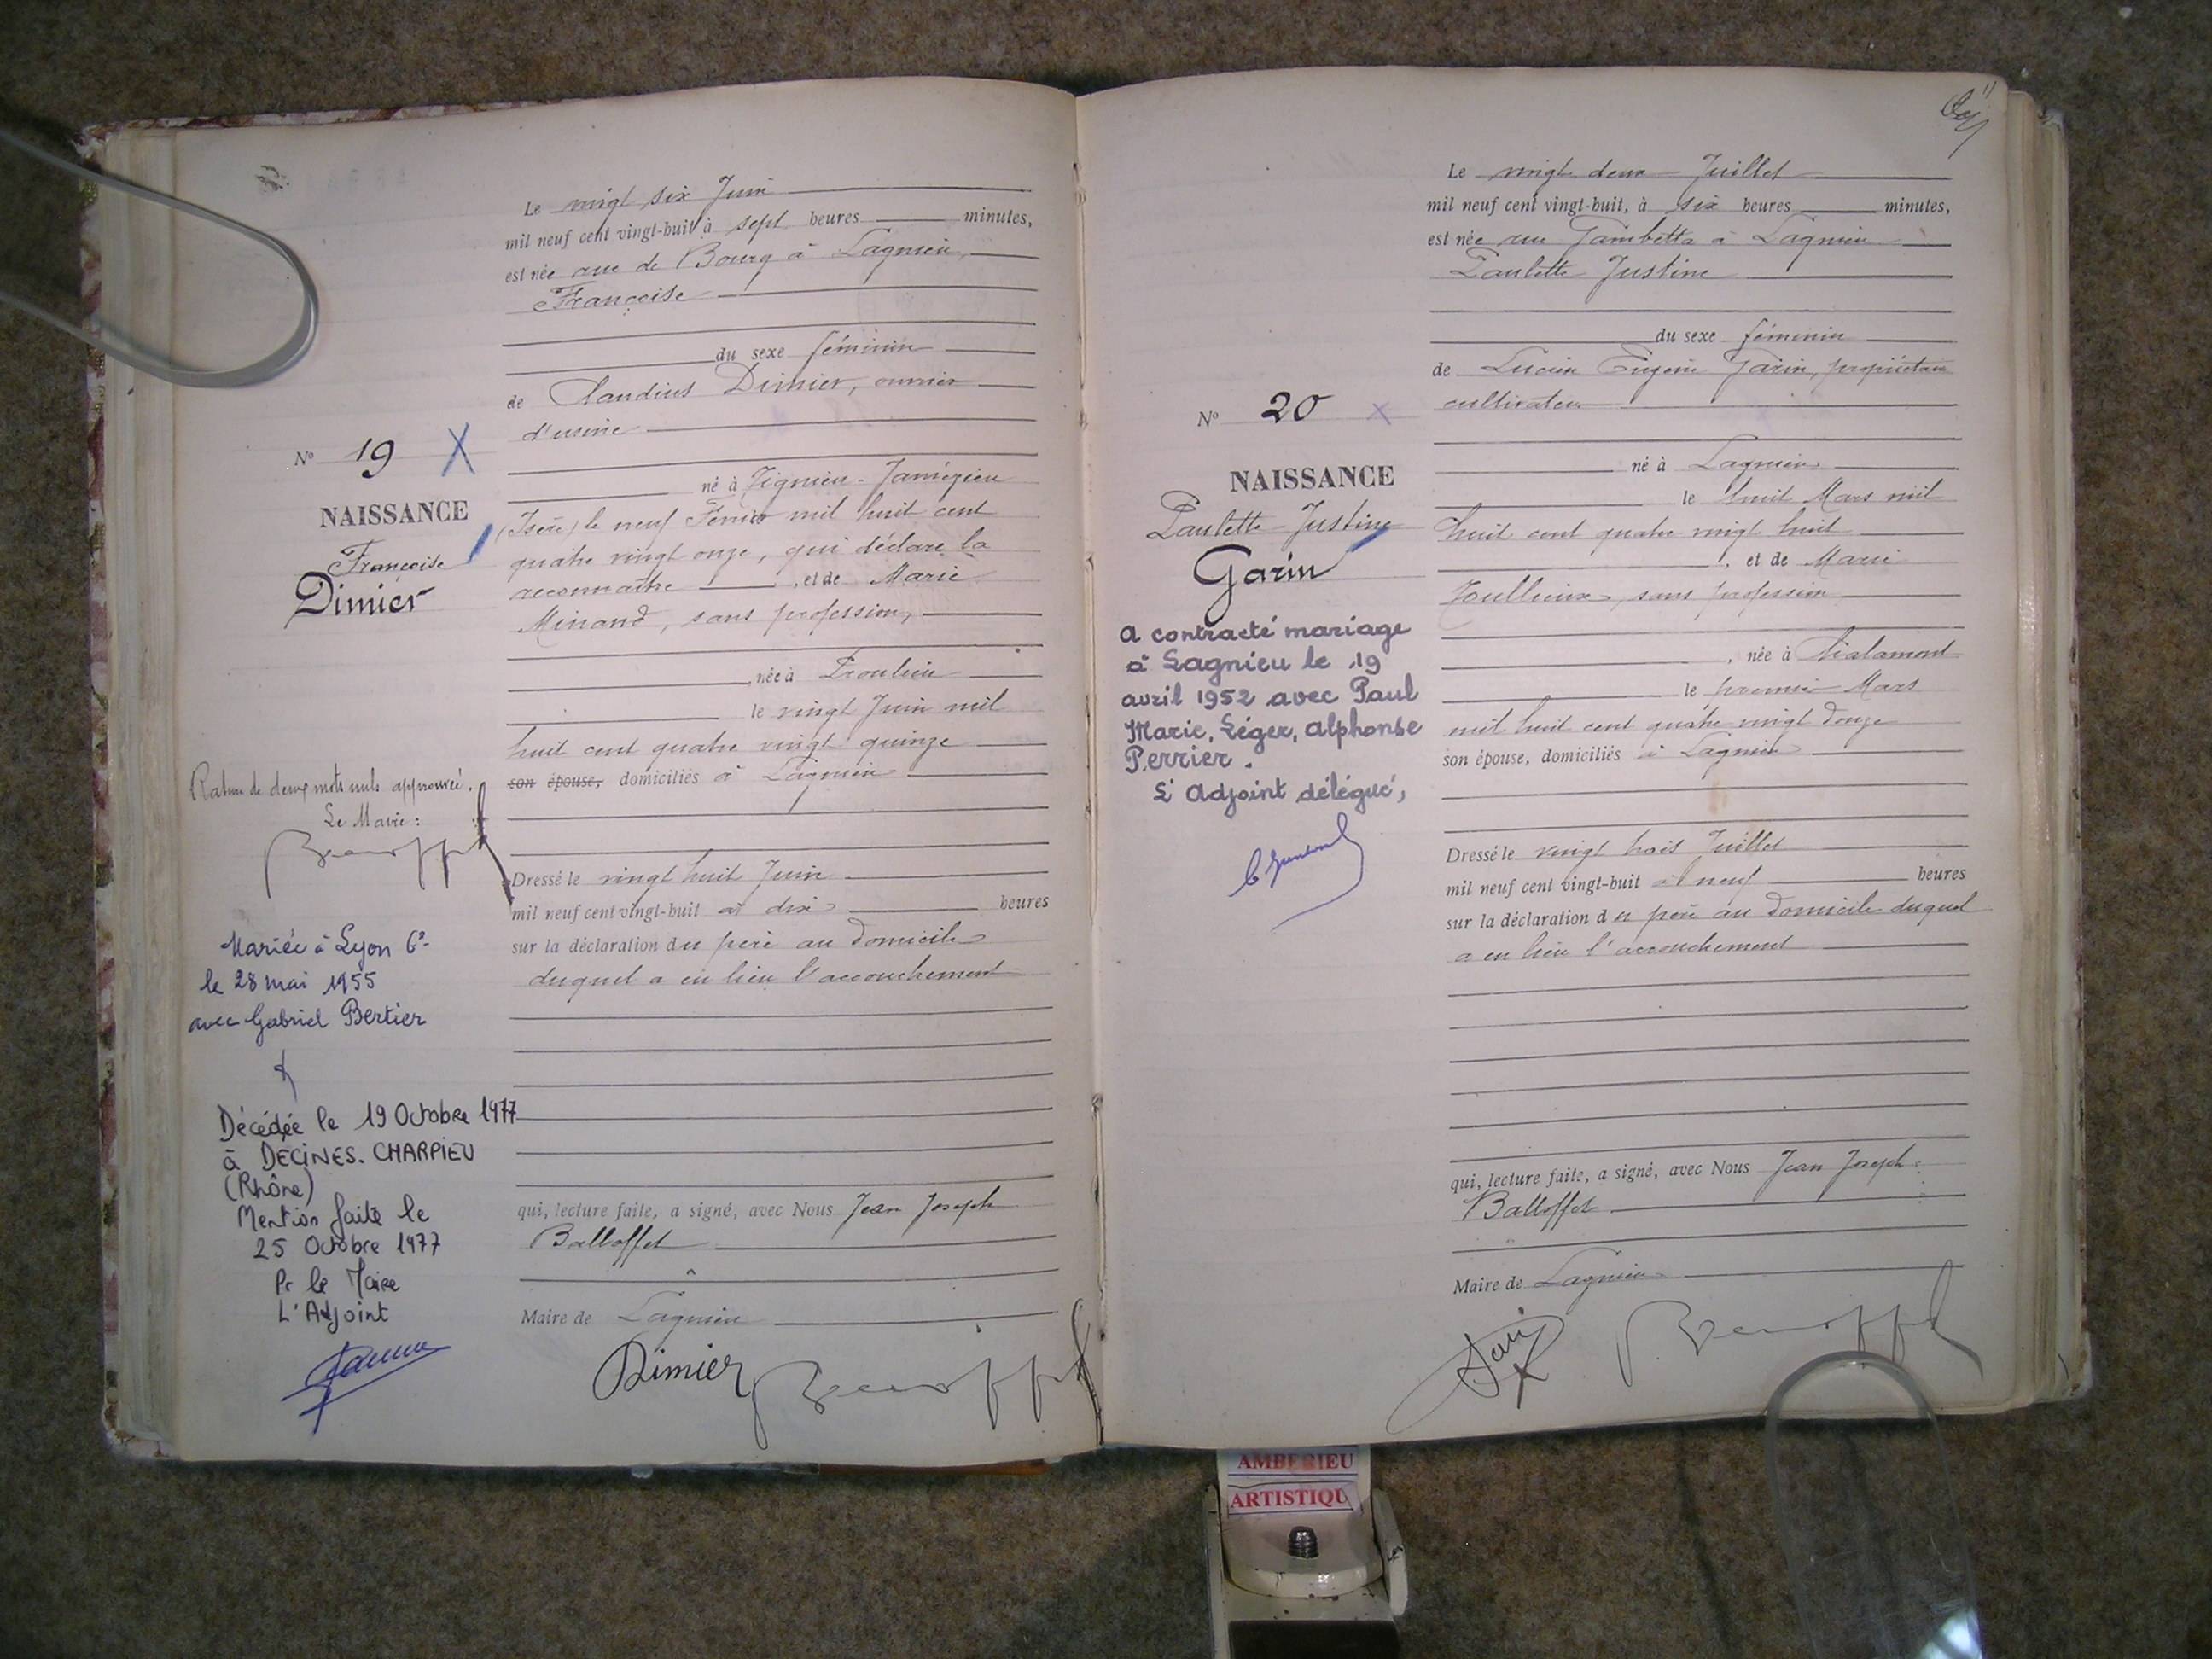 Le vingt six Juin
mil neuf cent vingt-huit à sept heures minutes,
est née rue de Bourg à Lagnieu,
Françoise
du sexe féminin
de Claudius Dimier, ouvrier
d'usine
né à Tignieu-Jameyzieu
(Isère) le neuf Février mil huit cent
quatre vingt onze, qui déclare la
reconnaître, et de Marie
Minand, sans profession,
née à
le vingt Juin mil
huit cent quatre vingt quinze
son épouse, domiciliés à Lagnieu
Dressé le vingt huit Juin
mil neuf cent vingt-huit à dix heures
sur la déclaration du père au domicile
duquel a eu lieu l'accouchement
qui, lecture faite, a signé, avec Nous Jean Joseph
Balloffet
Maire de Lagnieu
Dimier
No 19 X
NAISSANCE
Françoise
Dimier
Rature de deux mots nuls approuvée.
Le Maire:
Mariée à Lyon 6e
le 28 mai 1955
avec Gabriel Bertier
Décédée le 19 Octobre 1977
à DECINES-CHARPIEU
(Rhône)
Mention faite le
25 Octobre 1977
Pr le Maire
L'Adjoint
Le vingt deux Juillet
mil neuf cent vingt-huit, à six heures minutes,
est née rue Gambetta à Lagnieu
Paulette Justine
du sexe féminin
de Lucien Eugène Garin, propriétaire
cultivateur
né à Lagnieu
le huit Mars mil
huit cent quatre vingt huit
, et de Marie
sans profession
, née à Chalamont
le premier Mars
mil huit cent quatre vingt douze
son épouse, domiciliés à Lagnieu
Dressé le vingt trois Juillet
mil neuf cent vingt-huit à neuf heures
sur la déclaration du père au domicile duquel
a eu lieu l'accouchement
qui, lecture faite, a signé, avec Nous Jean Joseph
Balloffet
Maire de Lagnieu
No 20 x
NAISSANCE
Paulette Justine
Garin
a contracté mariage
à Lagnieu le 19
avril 1952 avec Paul
Marie, Léger, Alphonse
Perrier.
L'Adjoint délégué,
AMBERIEU
ARTISTIQU